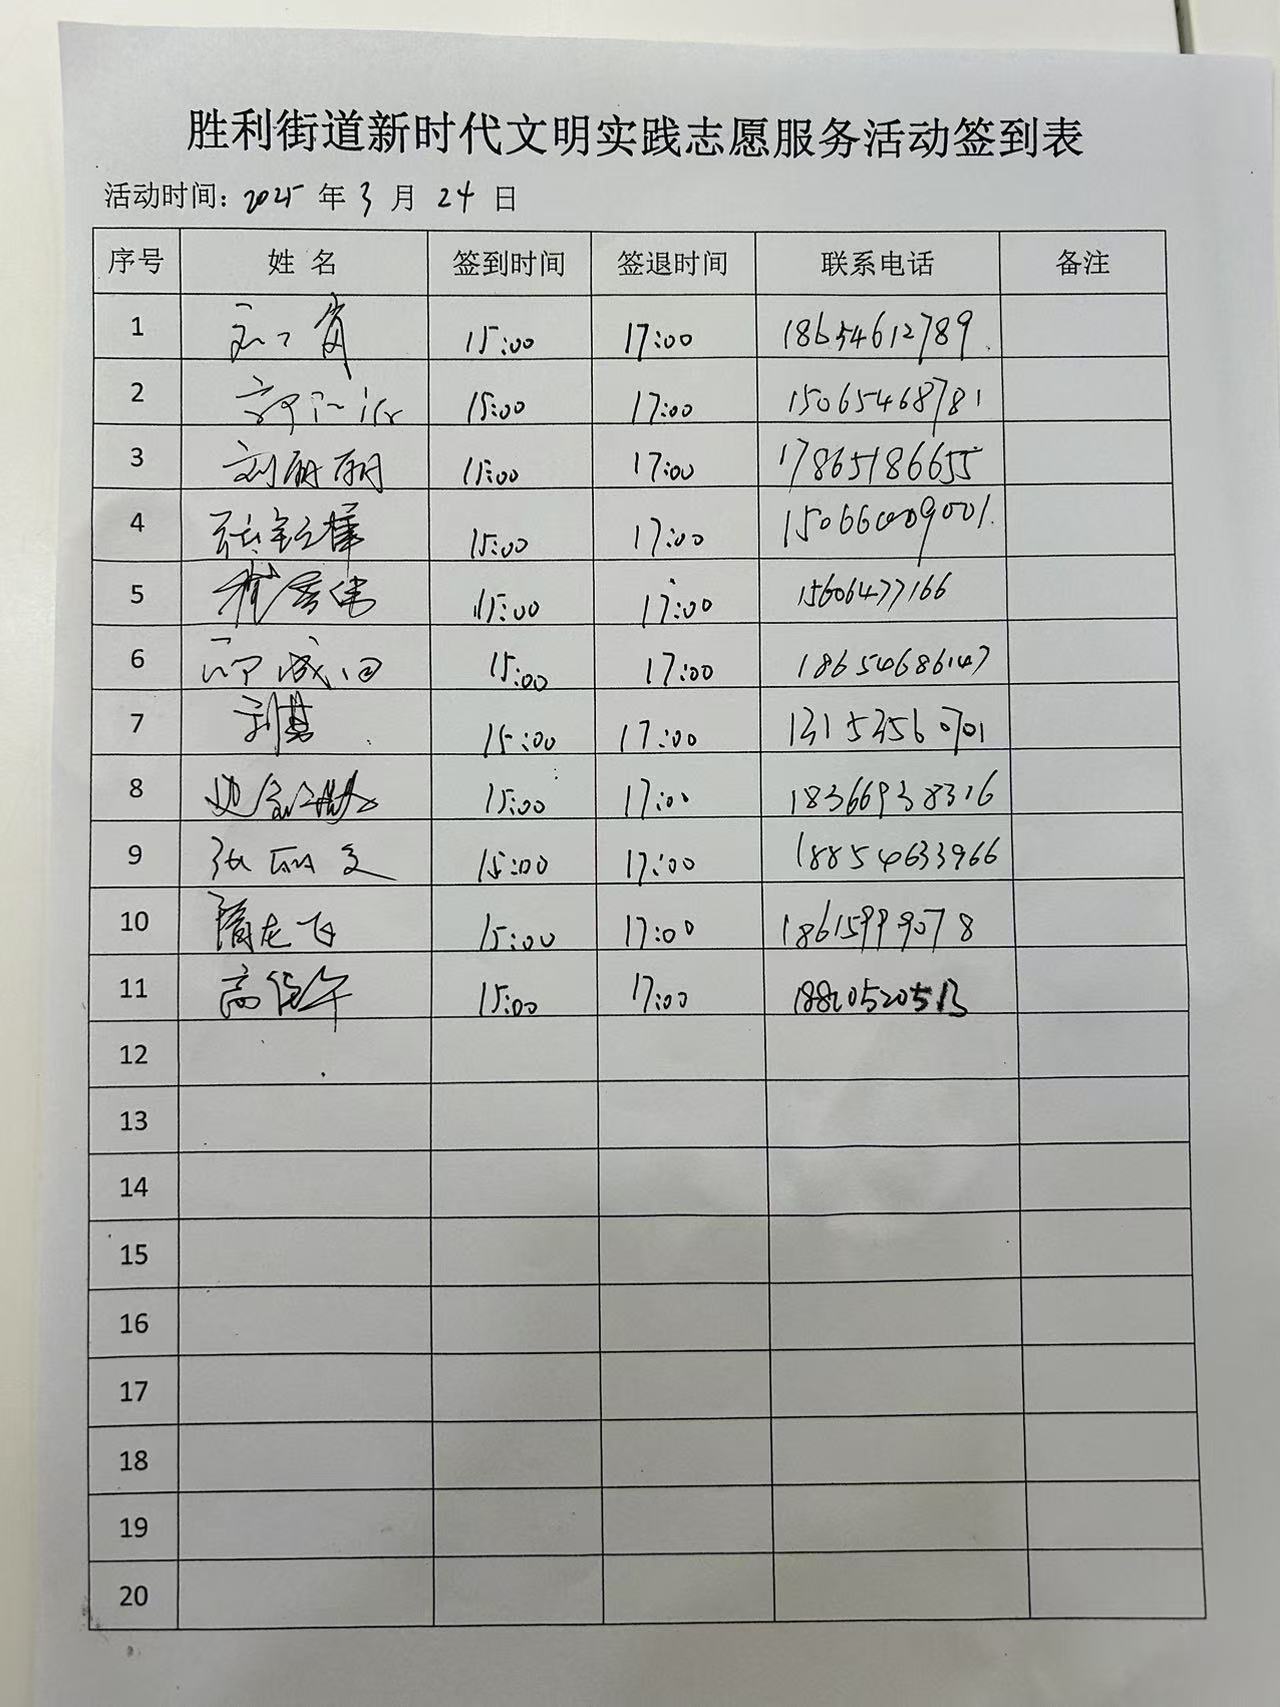 胜利街道新时代文明实践志愿服务活动签到表
活动时间：2025 年 3 月 24 日
序号 姓 名 签到时间 签退时间 联系电话 备注
1 15:00 17:00 18654612789
2 15:00 17:00 15065468781
3 刘丽丽 15:00 17:00 17865186655
4 15:00 17:00 15066009001
5 15:00 17:00 15606477166
6 15:00 17:00 18654686147
7 15:00 17:00
8 15:00 17:00 18366938316
9 15:00 17:00 18854633966
10 隋龙飞 15:00 17:00 18615999078
11 15:00 17:00
12
13
14
15
16
17
18
19
20